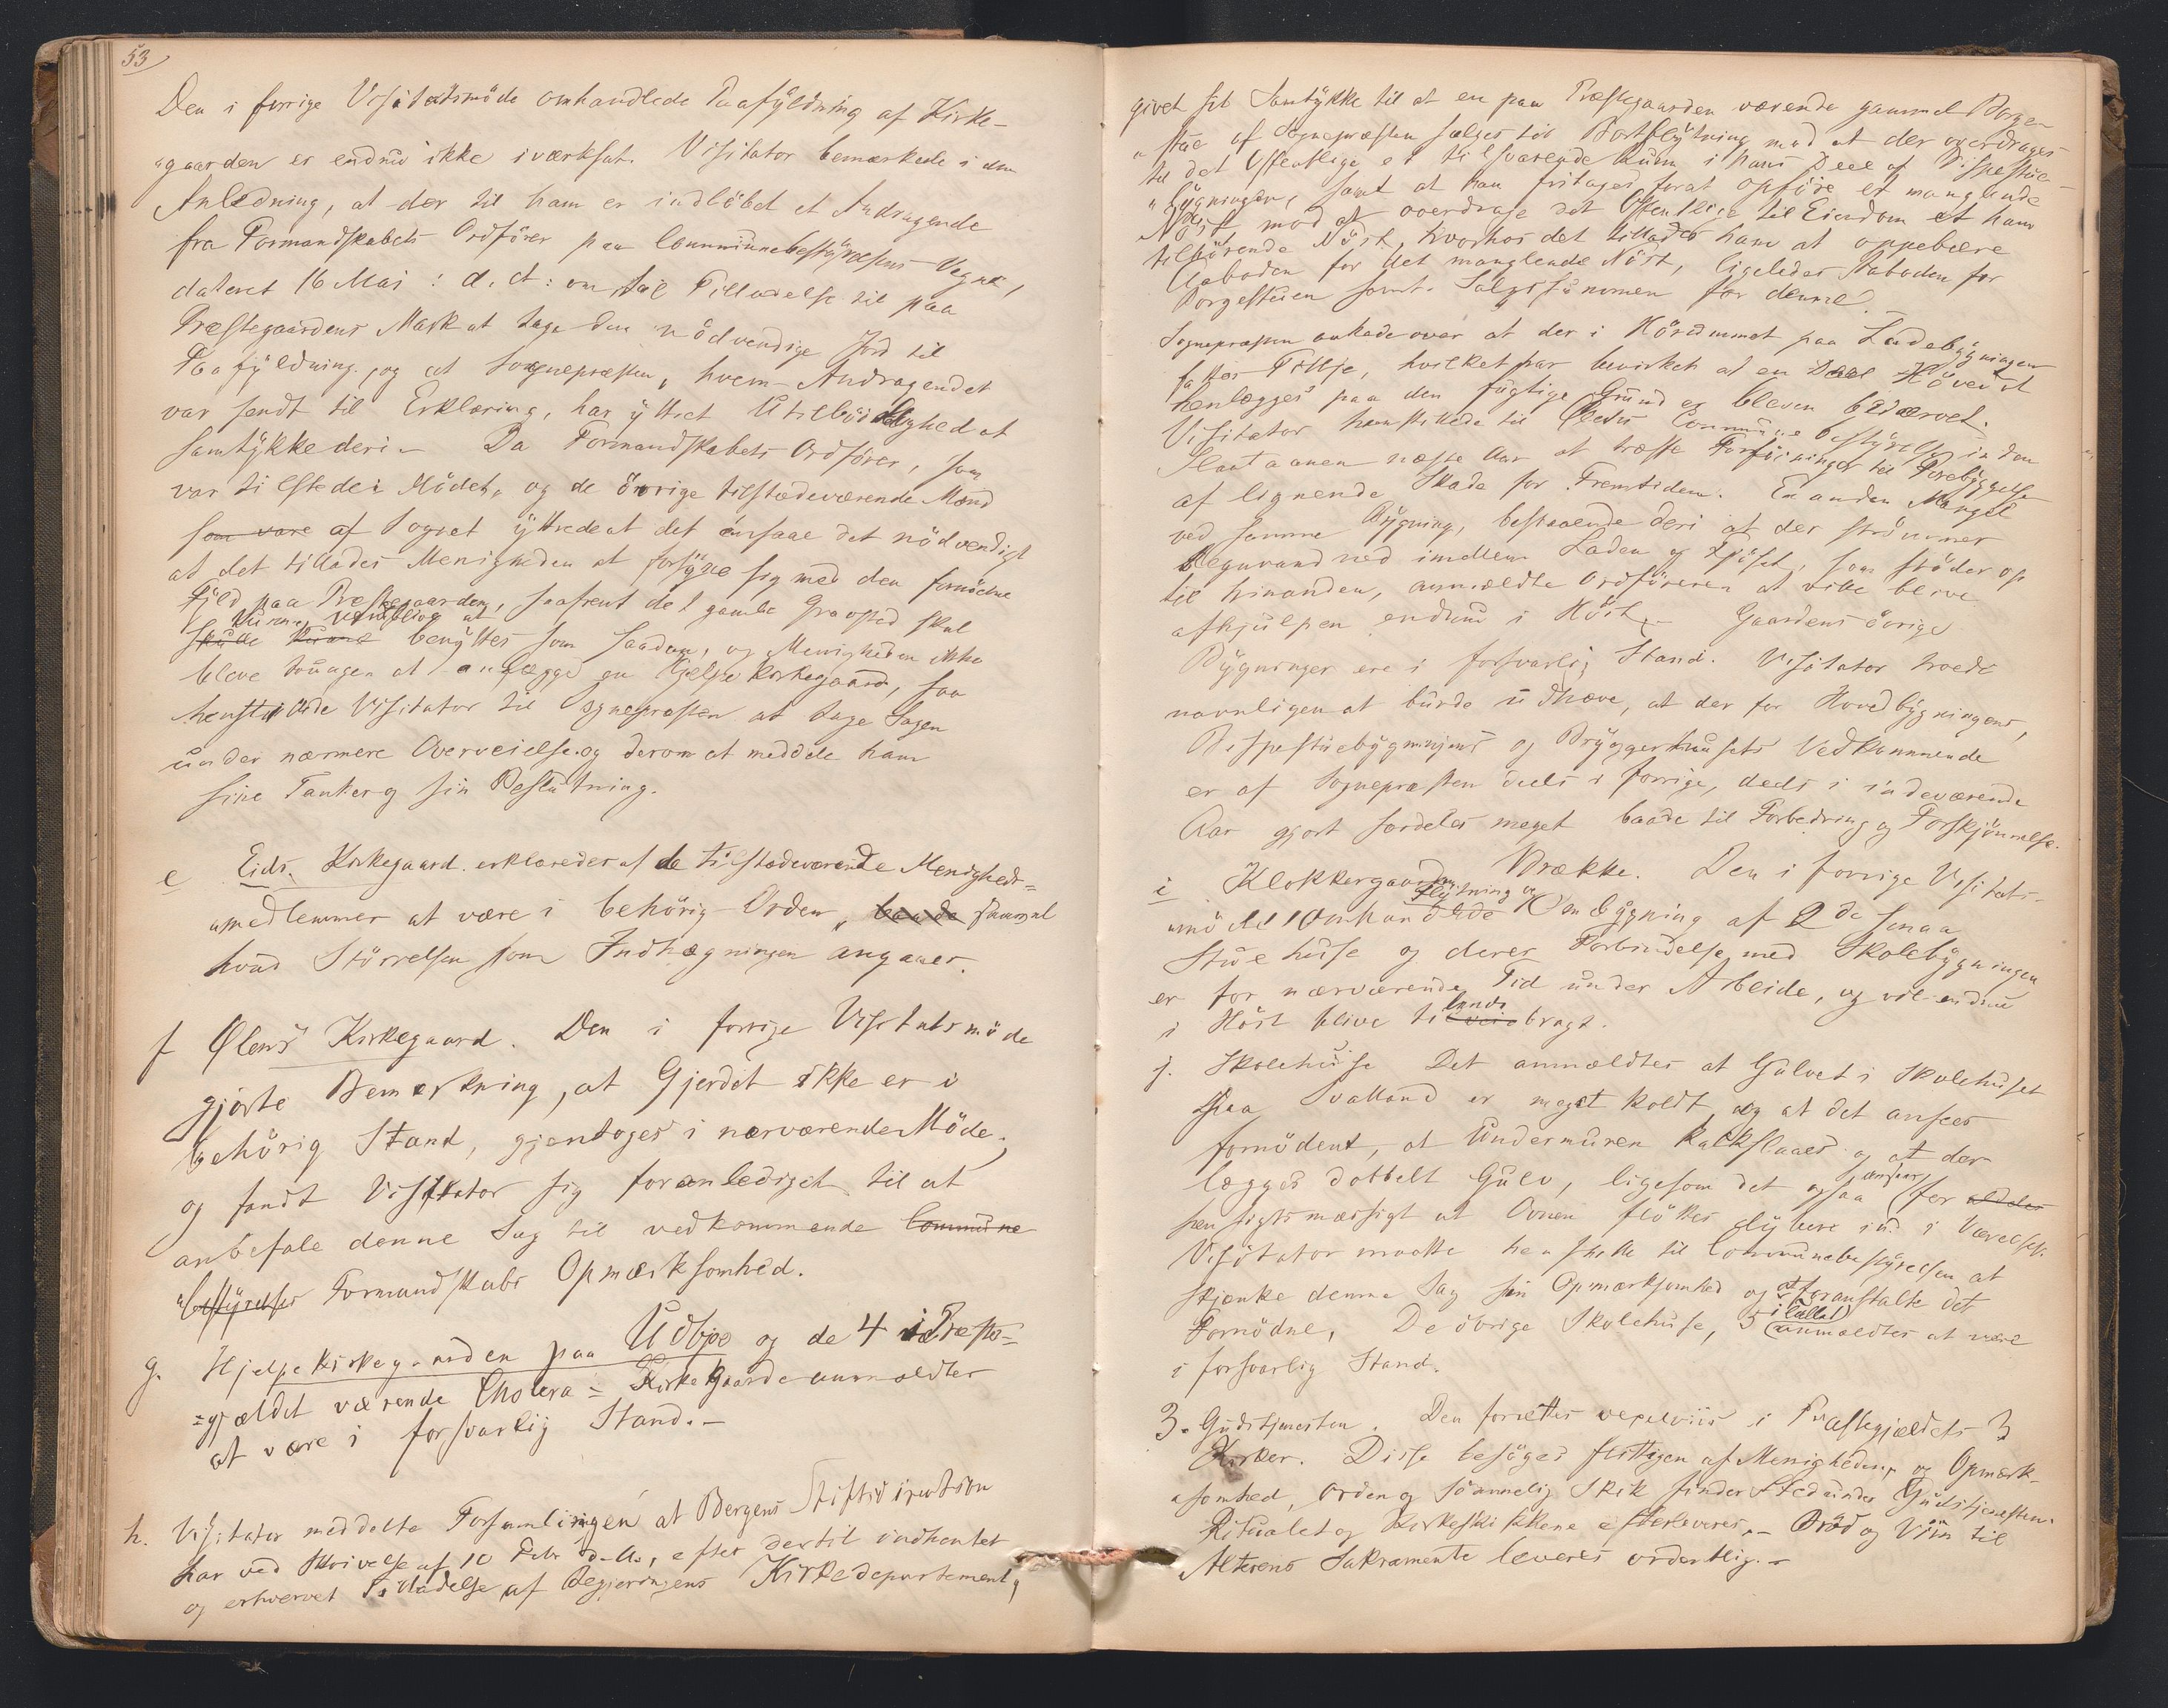 53
Den i forrige Visitatsmöde omhandlede Paafyldning af Kirke-
"gaarden er endnu ikke iværksat. Visitator bemærkede i den
Anledning, at der til ham er indlöbet et Andragende
fra Formandskabets Ordförer paa Communebestyrelsens Vegne,
dateret 16 Mai : d. A: om Tilladelse til paa
Præstegaardens Mark at tage den nödvendige Jord til
Paafyldning, og at Sognepræsten, hvem Andragendet
var sendt til Erklæring, har yttret Utilböielighed at
samtykke deri. – Da Formandskabets Ordförer, som
var tilstede i Mödet, og de övrige tilstedeværende Mænd
som vare af Sognet yttrede at det ansaae det nödvendigt
at det tillades Menigheden at forsyne sig med den fornödne
Fyld paa Præstegaarden, saafremt det gamle Gravsted skal
kunne vedblive at
skulle kunne benyttes som saadan, og Menigheden ikke
bleve tvungen at anlægge en Hjelpekirkegaard, saa
henstillede Visitator til Sognepræsten at tage Sagen
under nærmere Overveielse og derom at meddele ham
sine Tanker og sin Beslutning.
e Eids Kirkegaard erklæredes af de tilstedeværende Menigheds=
"medlemmer at være i behörig Orden, baade saavel
hvad Störrelsen som Indhegningen angaaer.
f Ølens Kirkegaard. Den i forrige Visitatsmöde
gjorte Bemærkning, at Gjerdet ikke er i
behörig Stand, gjentoges i nærværende Möde,
og fandt Visitator sig foranlediget til at
anbefale denne Sag til vedkommende Commune
"bestyrelses Formandskabs Opmærksomhed.
g. Hjelpekirkegaarden paa Udbjoe og de 4 i Præste=
=gjældet værende Cholera=Kirkegaarde anmeldtes
at være i forsvarlig Stand. –
h. Visitator meddelte Forsamlingen at Bergens Stiftsdirection
har ved Skrivelse af 10 Febr d. A., efter dertil indhentet
og erhvervet Tilladelse af Regjeringens Kirkedepartement,
givet sit Samtykke til at en paa Præstegaarden værende gammel Borge-
"stue af Sognepræsten sælges til Bortflytning mod at der overdrages
til det Offentlige et tilsvarende Rum i hans Deel af Bispestue-
"bygningen, samt at han fritages for at opföre et manglende
Nöst mod at overdrage det Offentlige til Eiendom et ham
tilhörende Nöst, hvorhos det tillades ham at oppebære
Aaboden for det manglende Nöst, ligeledes Aaboden for
Borgestuen samt Salgssummen for denne.
Sognepræsten ankede over at der i Hörummet paa Ladebygningen
fattes Tillje, hvilket har bevirket at en Deel Höe ved at
henlægges paa den fugtige Grund er bleven bedærvet.
Visitator henstillede til Ølens Communebestyrelse i den
af lignende Skade for Fremtiden. En anden Mangel
ved samme Bygning, bestaaende deri at der strömmer
Regnvand ned imellem Laden og Fjöset, som stöder op
til hinanden, anmeldte Ordföreren at ville blive
afhjulpen endnu i Höst. – Gaardens övrige
Bygninger ere i forsvarlig Stand. Visitator troede
navnligen at burde udhæve, at der for Hovedbygningens,
Bispestuebygningens og Bryggerhuusets Vedkommende
er af Sognepræsten deels i forrige, deels i indeværende
Aar gjort særdeles meget baade til Forbedring og Forskjönnelse.
i Klokkergaarden Brække. Den i forrige Visitats-
Flytning og
"möde omhandlede Ombygning af 2de smaa
Stuehuse og deres Forbindelse med Skolebygningen
er for nærværende Tid under Arbeide, og vil endnu
i Höst blive tilveiebragt.
j. Skolehuse Det anmeldtes at Gulvet i Skolehuset
paa Svalland er meget koldt, og at det ansees
fornödent, at Undermuren kalkslaaes og at der
lægges dobbelt Gulv, ligesom det ogsaa ansees for aldeles
hensigtsmæssigt at Ovnen flöttes dybere ind i Værelset.
Visitator maatte henstille til Communebestyrelsen at
skjenke denne Sag sin Opmærksomhed og at foranstalte det
Fornödne. De övrige Skolehuse, 5 i tallet, anmeldtes at være
i forsvarlig Stand.
3. Gudstjenesten. Den forrettes vexelviis i Præstegjældets 3
Kirker. Disse besöges flittigen af Menigheden, og Opmærk-
"somhed, Orden og sömmelig Skik finder Sted under Gudstjenesten.
Ritualet og Kirkeskikkene efterleves. – Bröd og Viin til
Alterens Sakramente leveres ordentlig. –